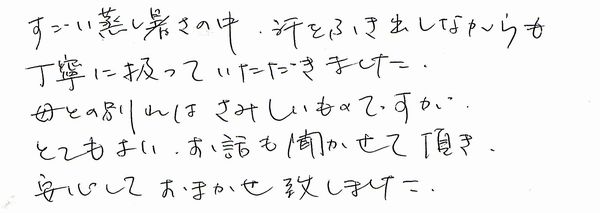 すごい蒸し暑さの中、汗をふき出しながらも
丁寧に扱っていただきました。
母との別れはさみしいものですが、
とてもよい、お話も聞かせて頂き、
安心しておまかせ致しました。